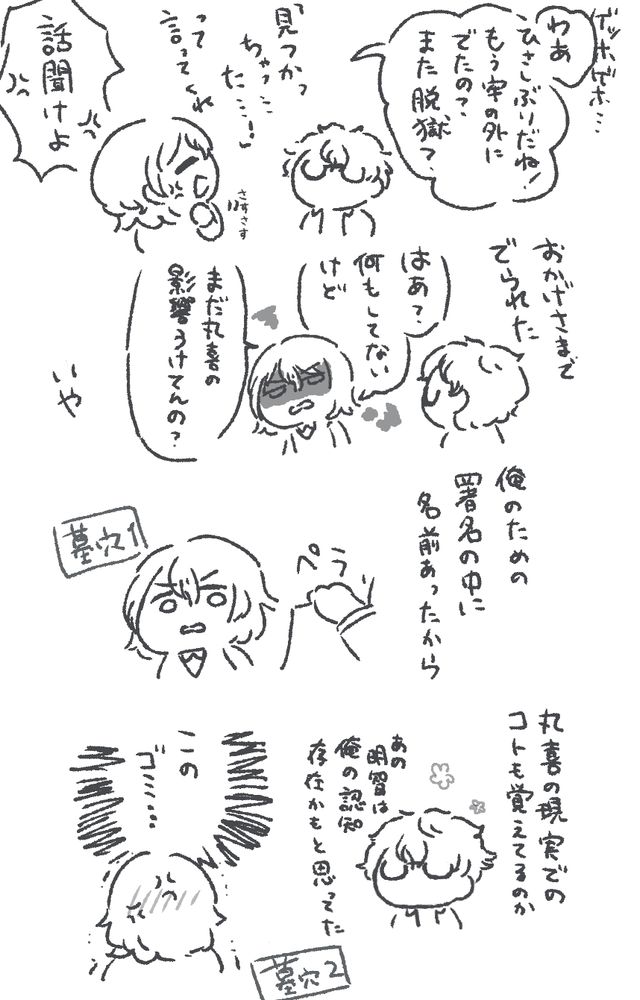 ゲッホゲホ…
わあ
ひさしぶりだね!
もう牢の外に
でたの?
また脱獄?
見つかっ
ちゃっ…
た…!
って
言ってくれ
さすさす
話聞けよ
おかげさまで
でられた
はあ?
何もしてない
けど
まだ丸喜の
影響うけてんの?
いや
俺のための
署名の中に
名前あったから
ペラ
墓穴1
丸喜の現実での
コトも覚えてるのか
あの
明智は
俺の認知
存在かもと思ってた
この
ゴミ……
墓穴2